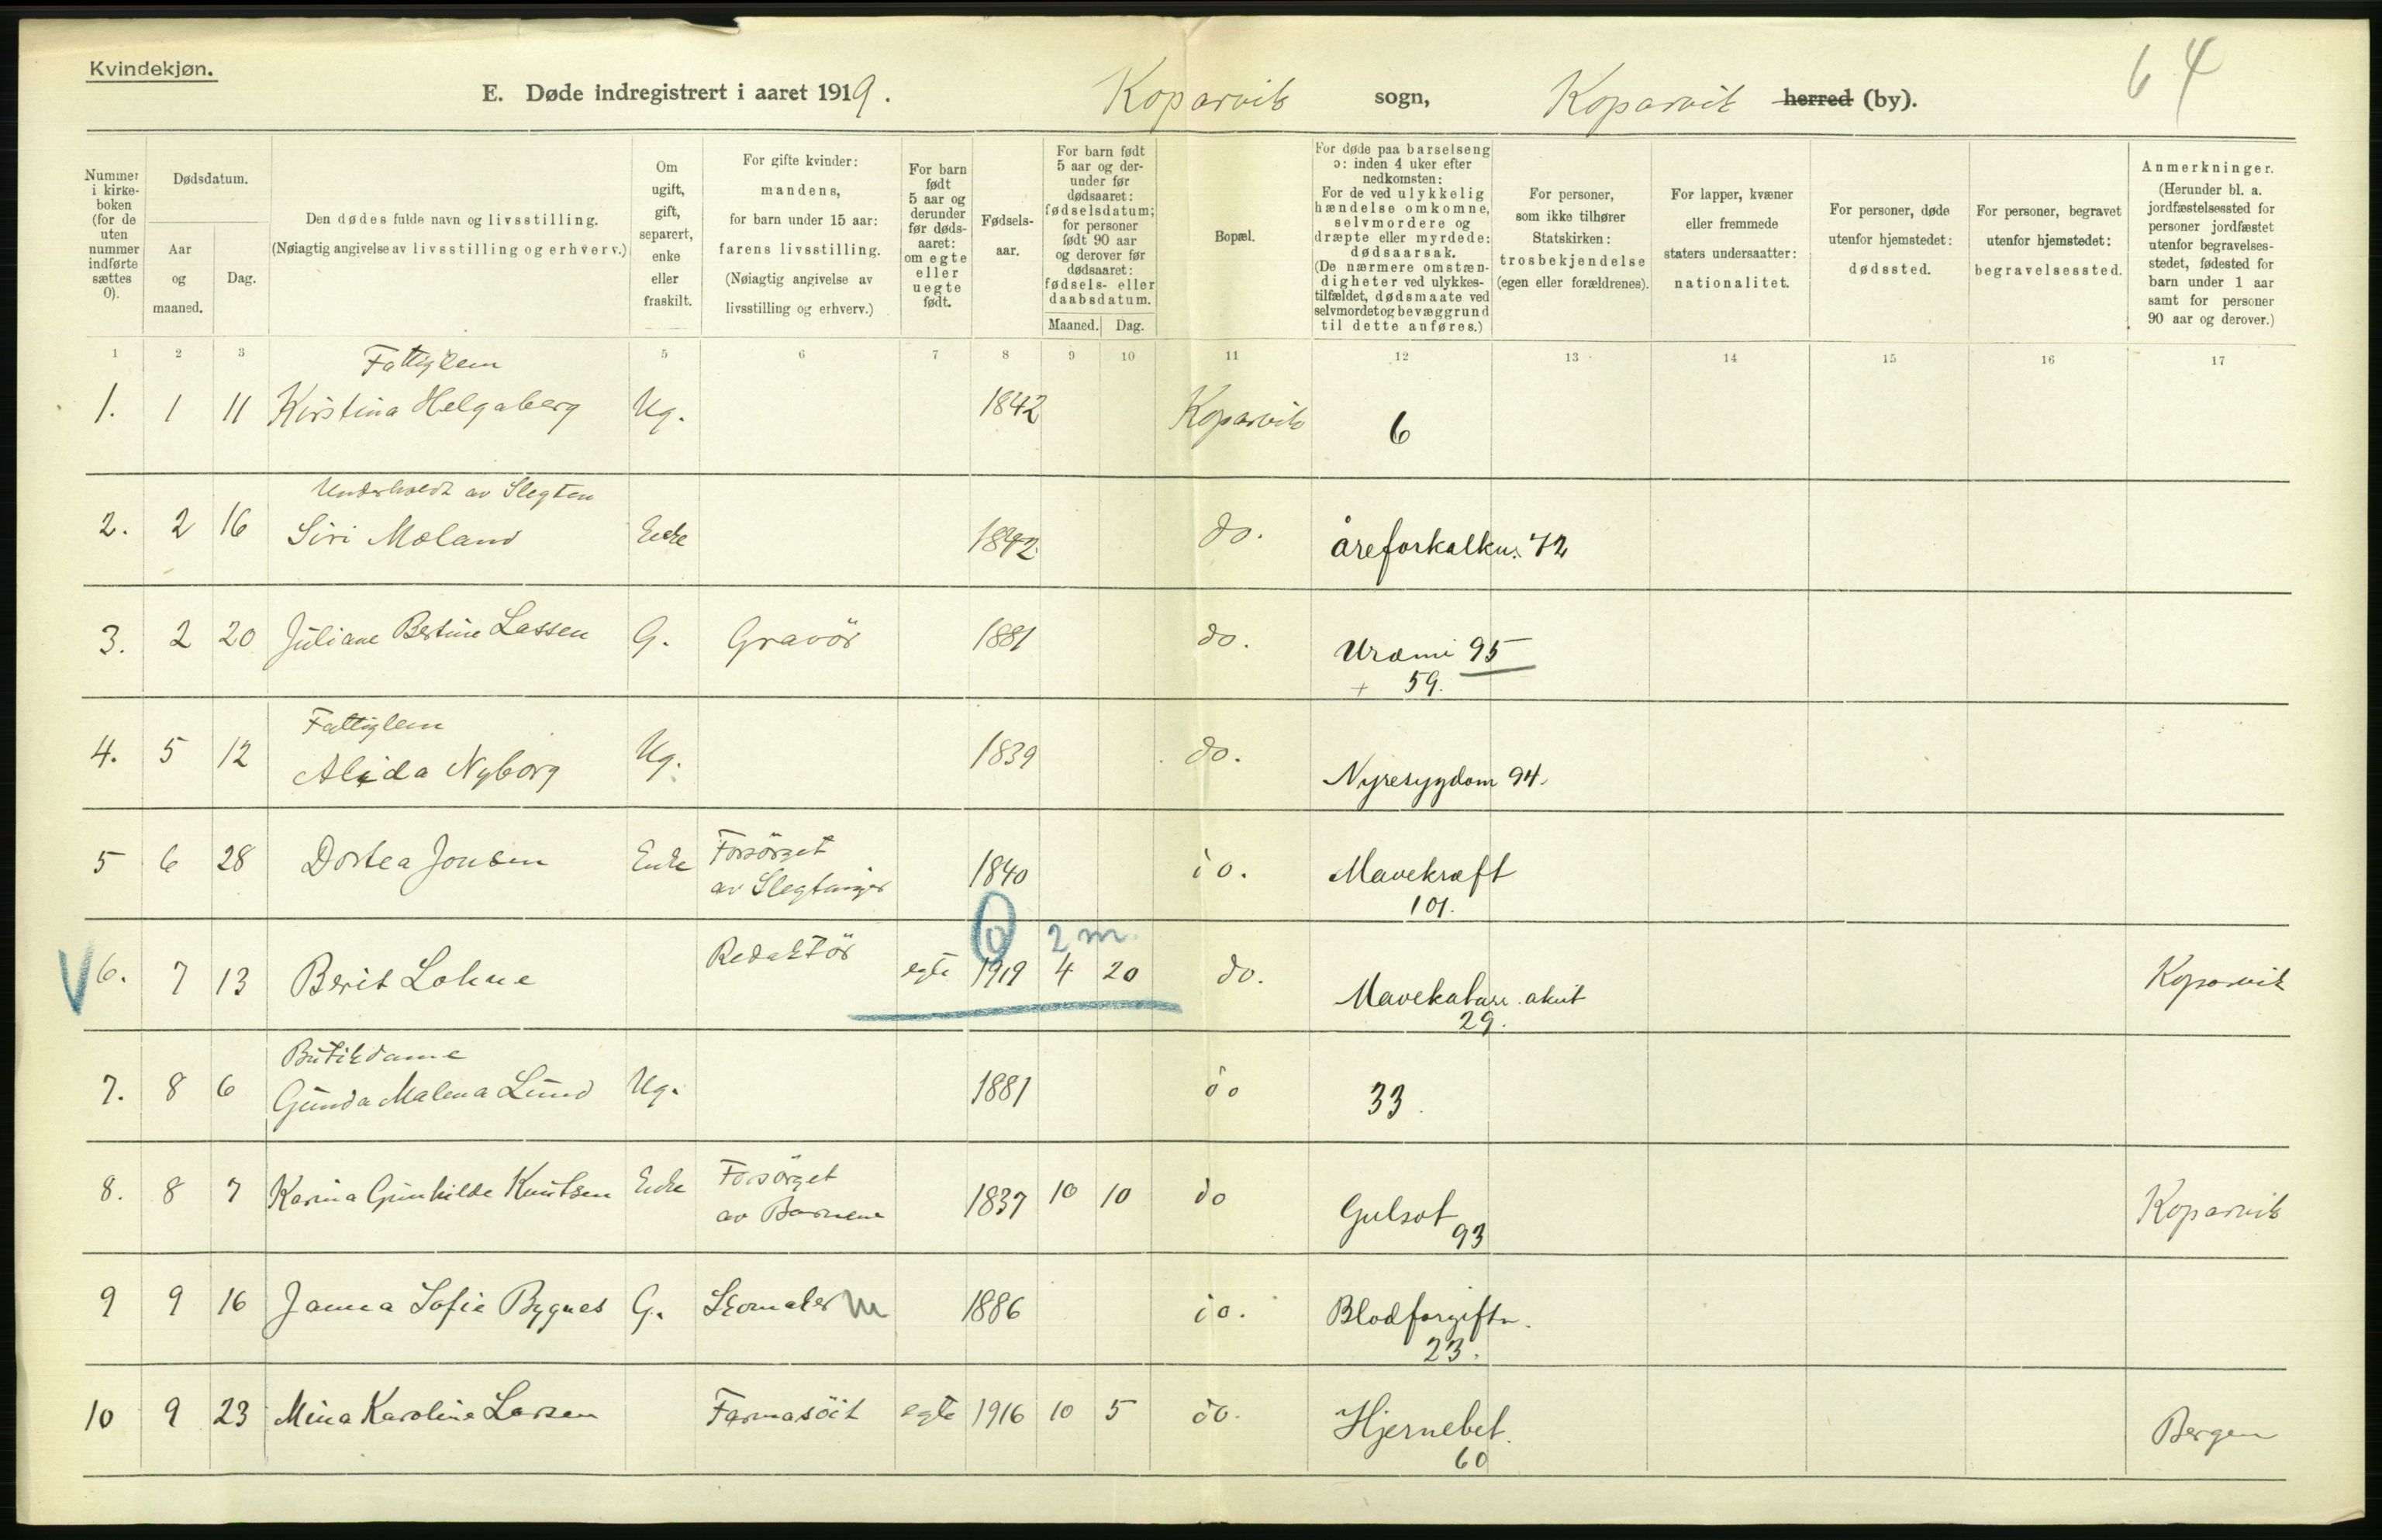 Kvindekjøn.
64
E. Døde indregistrert i aaret 1919. Koparvik sogn, Koparvik herred (by).
Nummer i kirke-boken (for de uten nummer indførte sættes 0).
Dødsdatum.
Aar og maaned.
Dag.
Den dødes fulde navn og livsstilling.
(Nøiagtig angivelse av livsstilling og erhverv.)
Om ugift, gift, separert, enke eller fraskilt.
For gifte kvinder: mandens, for barn under 15 aar: farens livsstilling. (Nøiagtig angivelse av livsstilling og erhverv.)
For barn født 5 aar og derunder før døds-aaret: om egte eller uegte født.
Fødsels-aar.
For barn født 5 aar og der-under før dødsaaret: fødselsdatum; for personer født 90 aar og derover før dødsaaret: fødsels- eller daabsdatum.
Maaned. Dag.
Bopæl.
For døde paa barselseng ɔ: inden 4 uker efter nedkomsten: For de ved ulykkelig hændelse omkomne, selvmordere og dræpte eller myrdede: dødsaarsak. (De nærmere omstæn-digheter ved ulykkes-tilfældet, dødsmaate ved selvmordet og bevæggrund til dette anføres.)
For personer, som ikke tilhører Statskirken: trosbekjendelse (egen eller forældrenes).
For lapper, kvæner eller fremmede staters undersaatter: nationalitet.
For personer, døde utenfor hjemstedet: dødssted.
For personer, begravet utenfor hjemstedet: begravelsessted.
Anmerkninger. (Herunder bl. a. jordfæstelsessted for personer jordfæstet utenfor begravelses-stedet, fødested for barn under 1 aar samt for personer 90 aar og derover.)
1 2 3 5 6 7 8 9 10 11 12 13 14 15 16 17
Fattiglem
1. 1 11 Kirstina Helgaberg Ug. 1842 Koparvik 6
Underholdt av Slegten
2. 2 16 Siri Moland Enke 1842 do. åreforkalkn. 72
3. 2 20 Juliane Bertine Lassen G. Gravör 1881 do. Uræmi 95
+ 59.
Fattiglem
4. 5 12 Alida Nyborg Ug. 1839 do. Nyresygdom 94.
5 6 28 Dortea Jonsen Enke Forsörget av Slegtninger 1840 do. Mavekræft
101.
0 2 m.
V 6. 7 13 Berit Lohne Redaktör egte 1919 4 20 do. Mavekatarr. akut Koparvik
29.
Butikdame
7. 8 6 Gunda Malena Lund Ug. 1881 do 33.
8. 8 7 Karina Gunhilde Knutsen Enke Forsörget av Barnene 1837 10 10 do Gulsot Koparvik
93
9 9 16 Janna Sofie Bygnes G. Skomaker m 1886 do. Blodforgiftn.
23.
10 9 23 Mina Karoline Larsen Farmasöit egte 1916 10 5 do. Hjernebet. Bergen
60